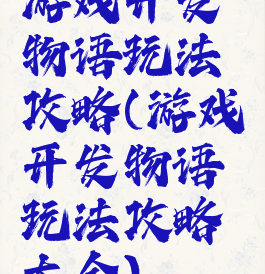 游戏开发
物语玩法
攻略(游戏
开发物语
玩法攻略
大全)